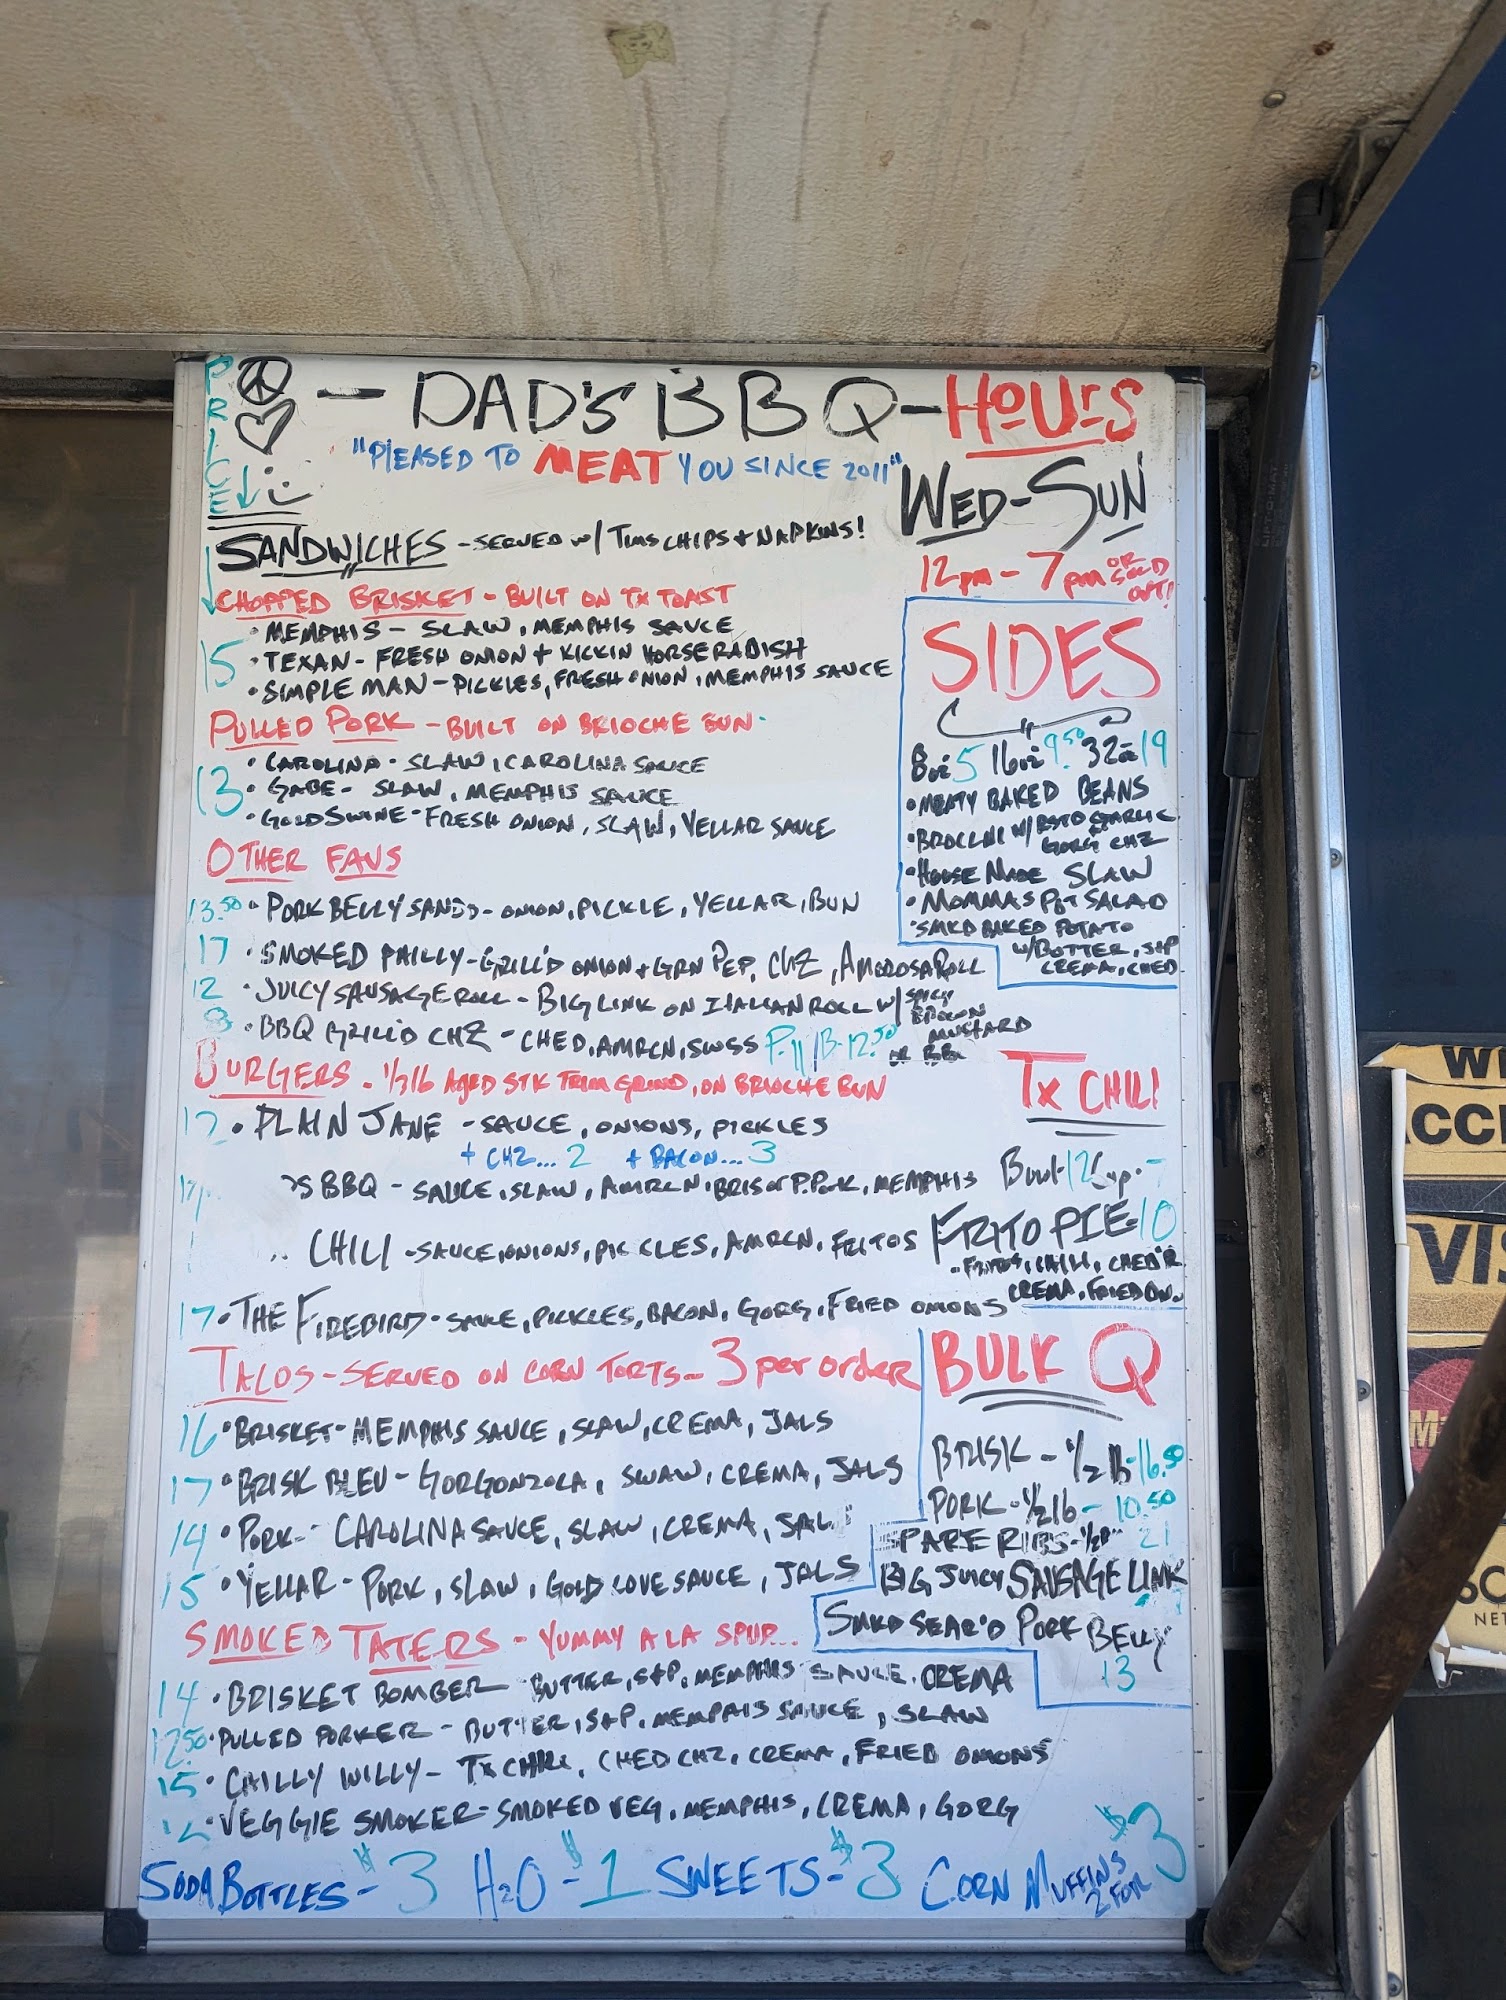 PRICE
- DAD'S BBQ -
"PLEASED TO MEAT YOU SINCE 2011"
HOURS
WED-SUN
12pm - 7pm OR SOLD OUT!
SANDWICHES - SERVED W/ TIMS CHIPS + NAPKINS!
CHOPPED BRISKET - BUILT ON TX TOAST
15
• MEMPHIS - SLAW, MEMPHIS SAUCE
• TEXAN - FRESH ONION + KICKIN HORSERADISH
• SIMPLE MAN - PICKLES, FRESH ONION, MEMPHIS SAUCE
PULLED PORK - BUILT ON BRIOCHE BUN
13
• CAROLINA - SLAW, CAROLINA SAUCE
• GABE - SLAW, MEMPHIS SAUCE
• GOLD SWINE - FRESH ONION, SLAW, YELLAR SAUCE
OTHER FAVS
13.50 • PORK BELLY SANDO - ONION, PICKLE, YELLAR, BUN
17 • SMOKED PHILLY - GRILL'D ONION + GRN PEP, CHZ, AMOROSA ROLL
12 • JUICY SAUSAGE ROLL - BIG LINK ON ITALIAN ROLL W/ SPICY BROWN MUSTARD OR BBQ
8 • BBQ GRILL'D CHZ - CHED, AMRCN, SWSS P-11/B-12.50
BURGERS - 1/3 lb AGED STK TRIM GRIND, ON BRIOCHE BUN
12 • PLAIN JANE - SAUCE, ONIONS, PICKLES
+ CHZ... 2 + BACON... 3
'S BBQ - SAUCE, SLAW, AMRCN, BRIS OR P.PORK, MEMPHIS
CHILI - SAUCE, ONIONS, PICKLES, AMRCN, FRITOS
17 • THE FIREBIRD - SAUCE, PICKLES, BACON, GORG, FRIED ONIONS
TACOS - SERVED ON CORN TORTS - 3 per order
16 • BRISKET - MEMPHIS SAUCE, SLAW, CREMA, JALS
17 • BRISK BLEU - GORGONZOLA, SWAW, CREMA, JALS
14 • PORK - CAROLINA SAUCE, SLAW, CREMA, JAL
15 • YELLAR - PORK, SLAW, GOLD LOVE SAUCE, JALS
SMOKED TATERS - YUMMY A LA SPUD...
14 • BRISKET BOMBER - BUTTER, S+P, MEMPHIS SAUCE, CREMA
12.50 • PULLED PORKER - BUTTER, S+P, MEMPHIS SAUCE, SLAW
15 • CHILLY WILLY - TX CHILI, CHED CHZ, CREMA, FRIED ONIONS
12 • VEGGIE SMOKER - SMOKED VEG, MEMPHIS, CREMA, GORG
SIDES
8oz 5 16oz 9.50 32oz 19
• MEATY BAKED BEANS
• BROCLINI W/ RSTD GARLIC + GORG CHZ
• HOUSE MADE SLAW
• MOMMAS POT SALAD
• SMKD BAKED POTATO
W/ BUTTER, S+P
CREMA, CHED
TX CHILI
Bowl-12 Cup-7
FRITO PIE-10
- FRITOS, CHILI, CHED'R
CREMA, FRIED ON.
BULK Q
BRISK - 1/2 lb - 16.50
PORK - 1/2 lb - 10.50
SPARE RIBS - 21
BIG JUICY SAUSAGE LINK
SMKD SEAR'D PORK BELLY
13
SODA BOTTLES - $3 H2O - $1 SWEETS - $3 CORN MUFFINS 2 FOR $3
VIS
NET